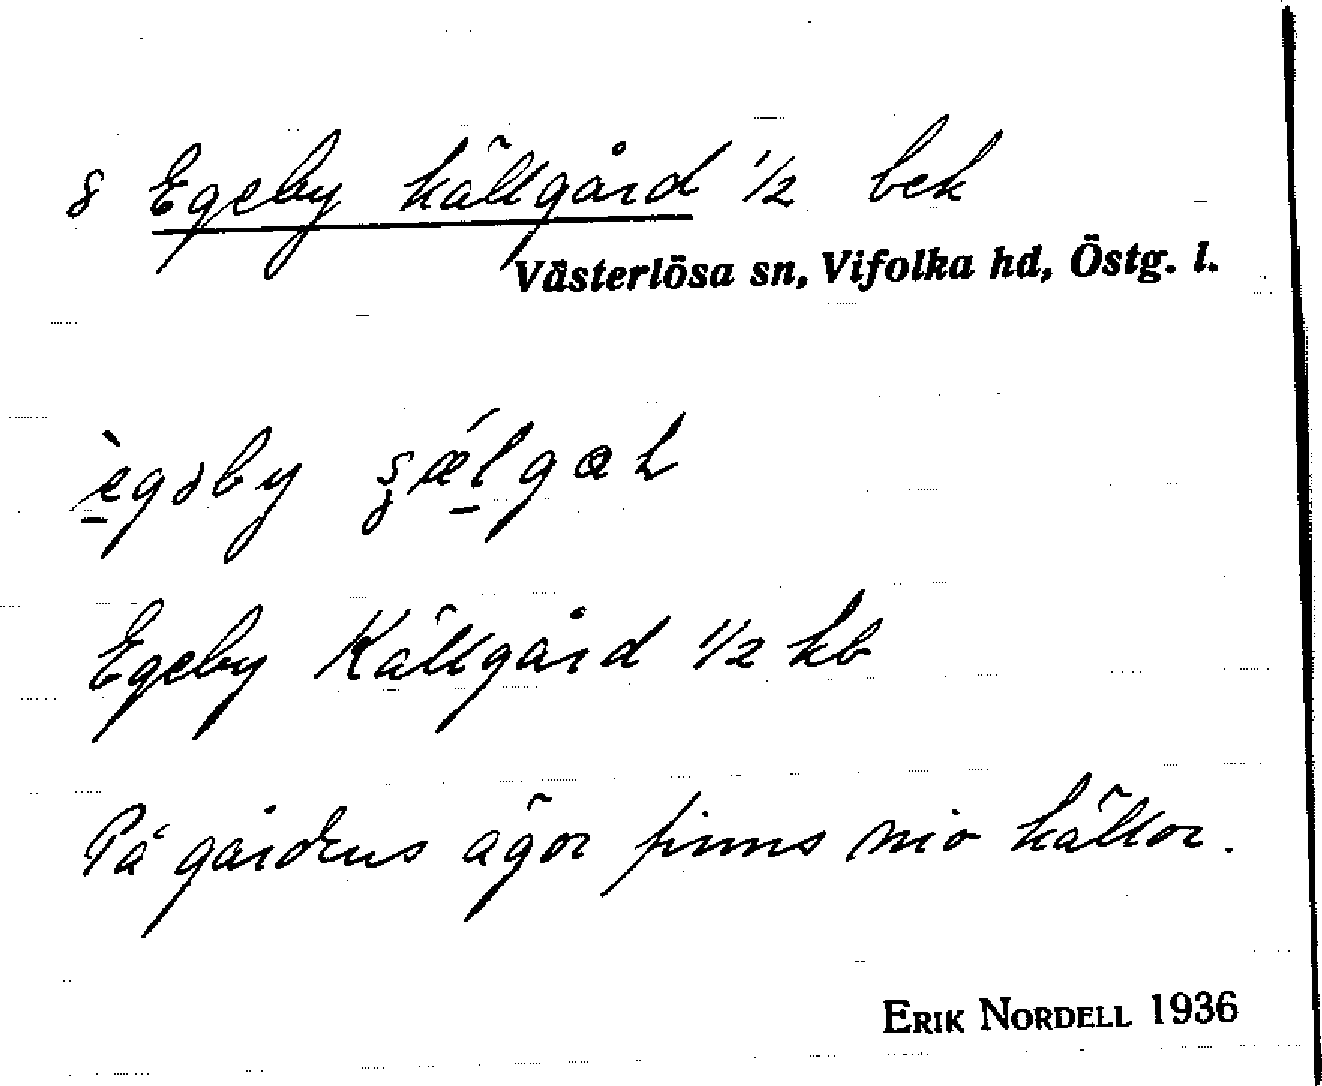 8 Egeby källgård 1/2 bek
Västerlösa sn, Vifolka hd, Östg. l.
Egeby Källgård 1/2 hb
På gårdens ägor finns nio källor.
ERIK NORDELL 1936